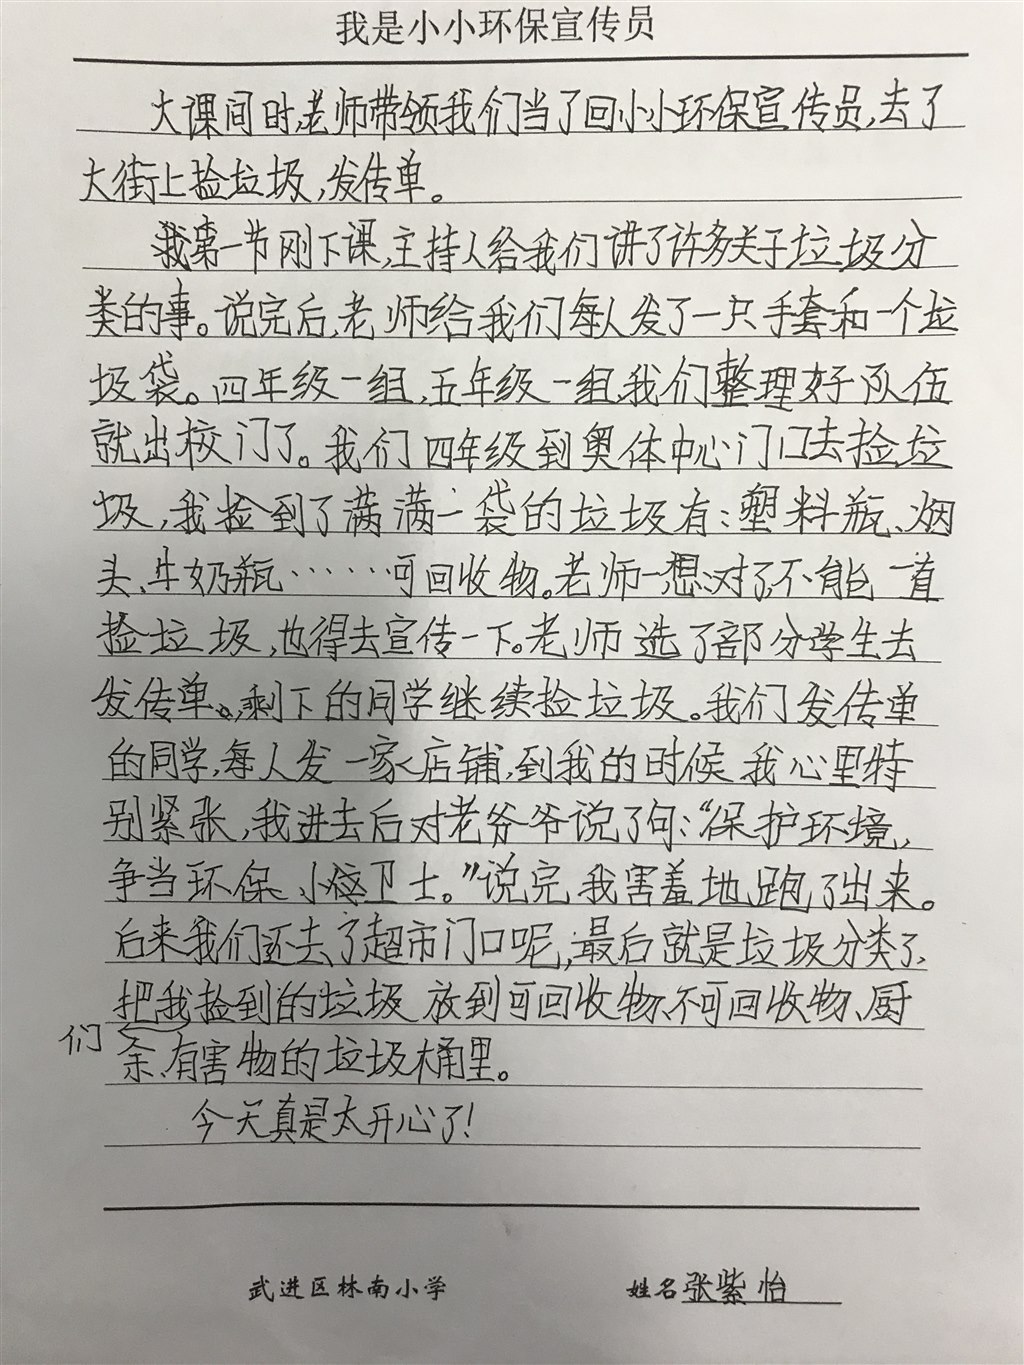 我是小小环保宣传员
大课间时,老师带领我们当了回小小环保宣传员,去了
大街上捡垃圾,发传单。
我第一节刚下课,主持人给我们讲了许多关于垃圾分
类的事。说完后,老师给我们每人发了一只手套和一个垃
圾袋。四年级一组,五年级一组,我们整理好队伍
就出校门了。我们四年级到奥体中心门口去捡垃
圾,我捡到了满满一袋的垃圾有:塑料瓶、烟
头、牛奶瓶……可回收物。老师一想:对了,不能一直
捡垃圾,也得去宣传一下。老师选了部分学生去
发传单。,剩下的同学继续捡垃圾。我们发传单
的同学,每人发一家店铺,到我的时候,我心里特
别紧张,我进去后对老爷爷说了句:“保护环境,
争当环保小卫士。”说完,我害羞地跑了出来。
后来我们还去了超市门口呢,最后就是垃圾分类了,
把我捡到的垃圾放到可回收物、不可回收物、厨
们
余、有害物的垃圾桶里。
今天真是太开心了!
武进区林南小学 姓名 张紫怡